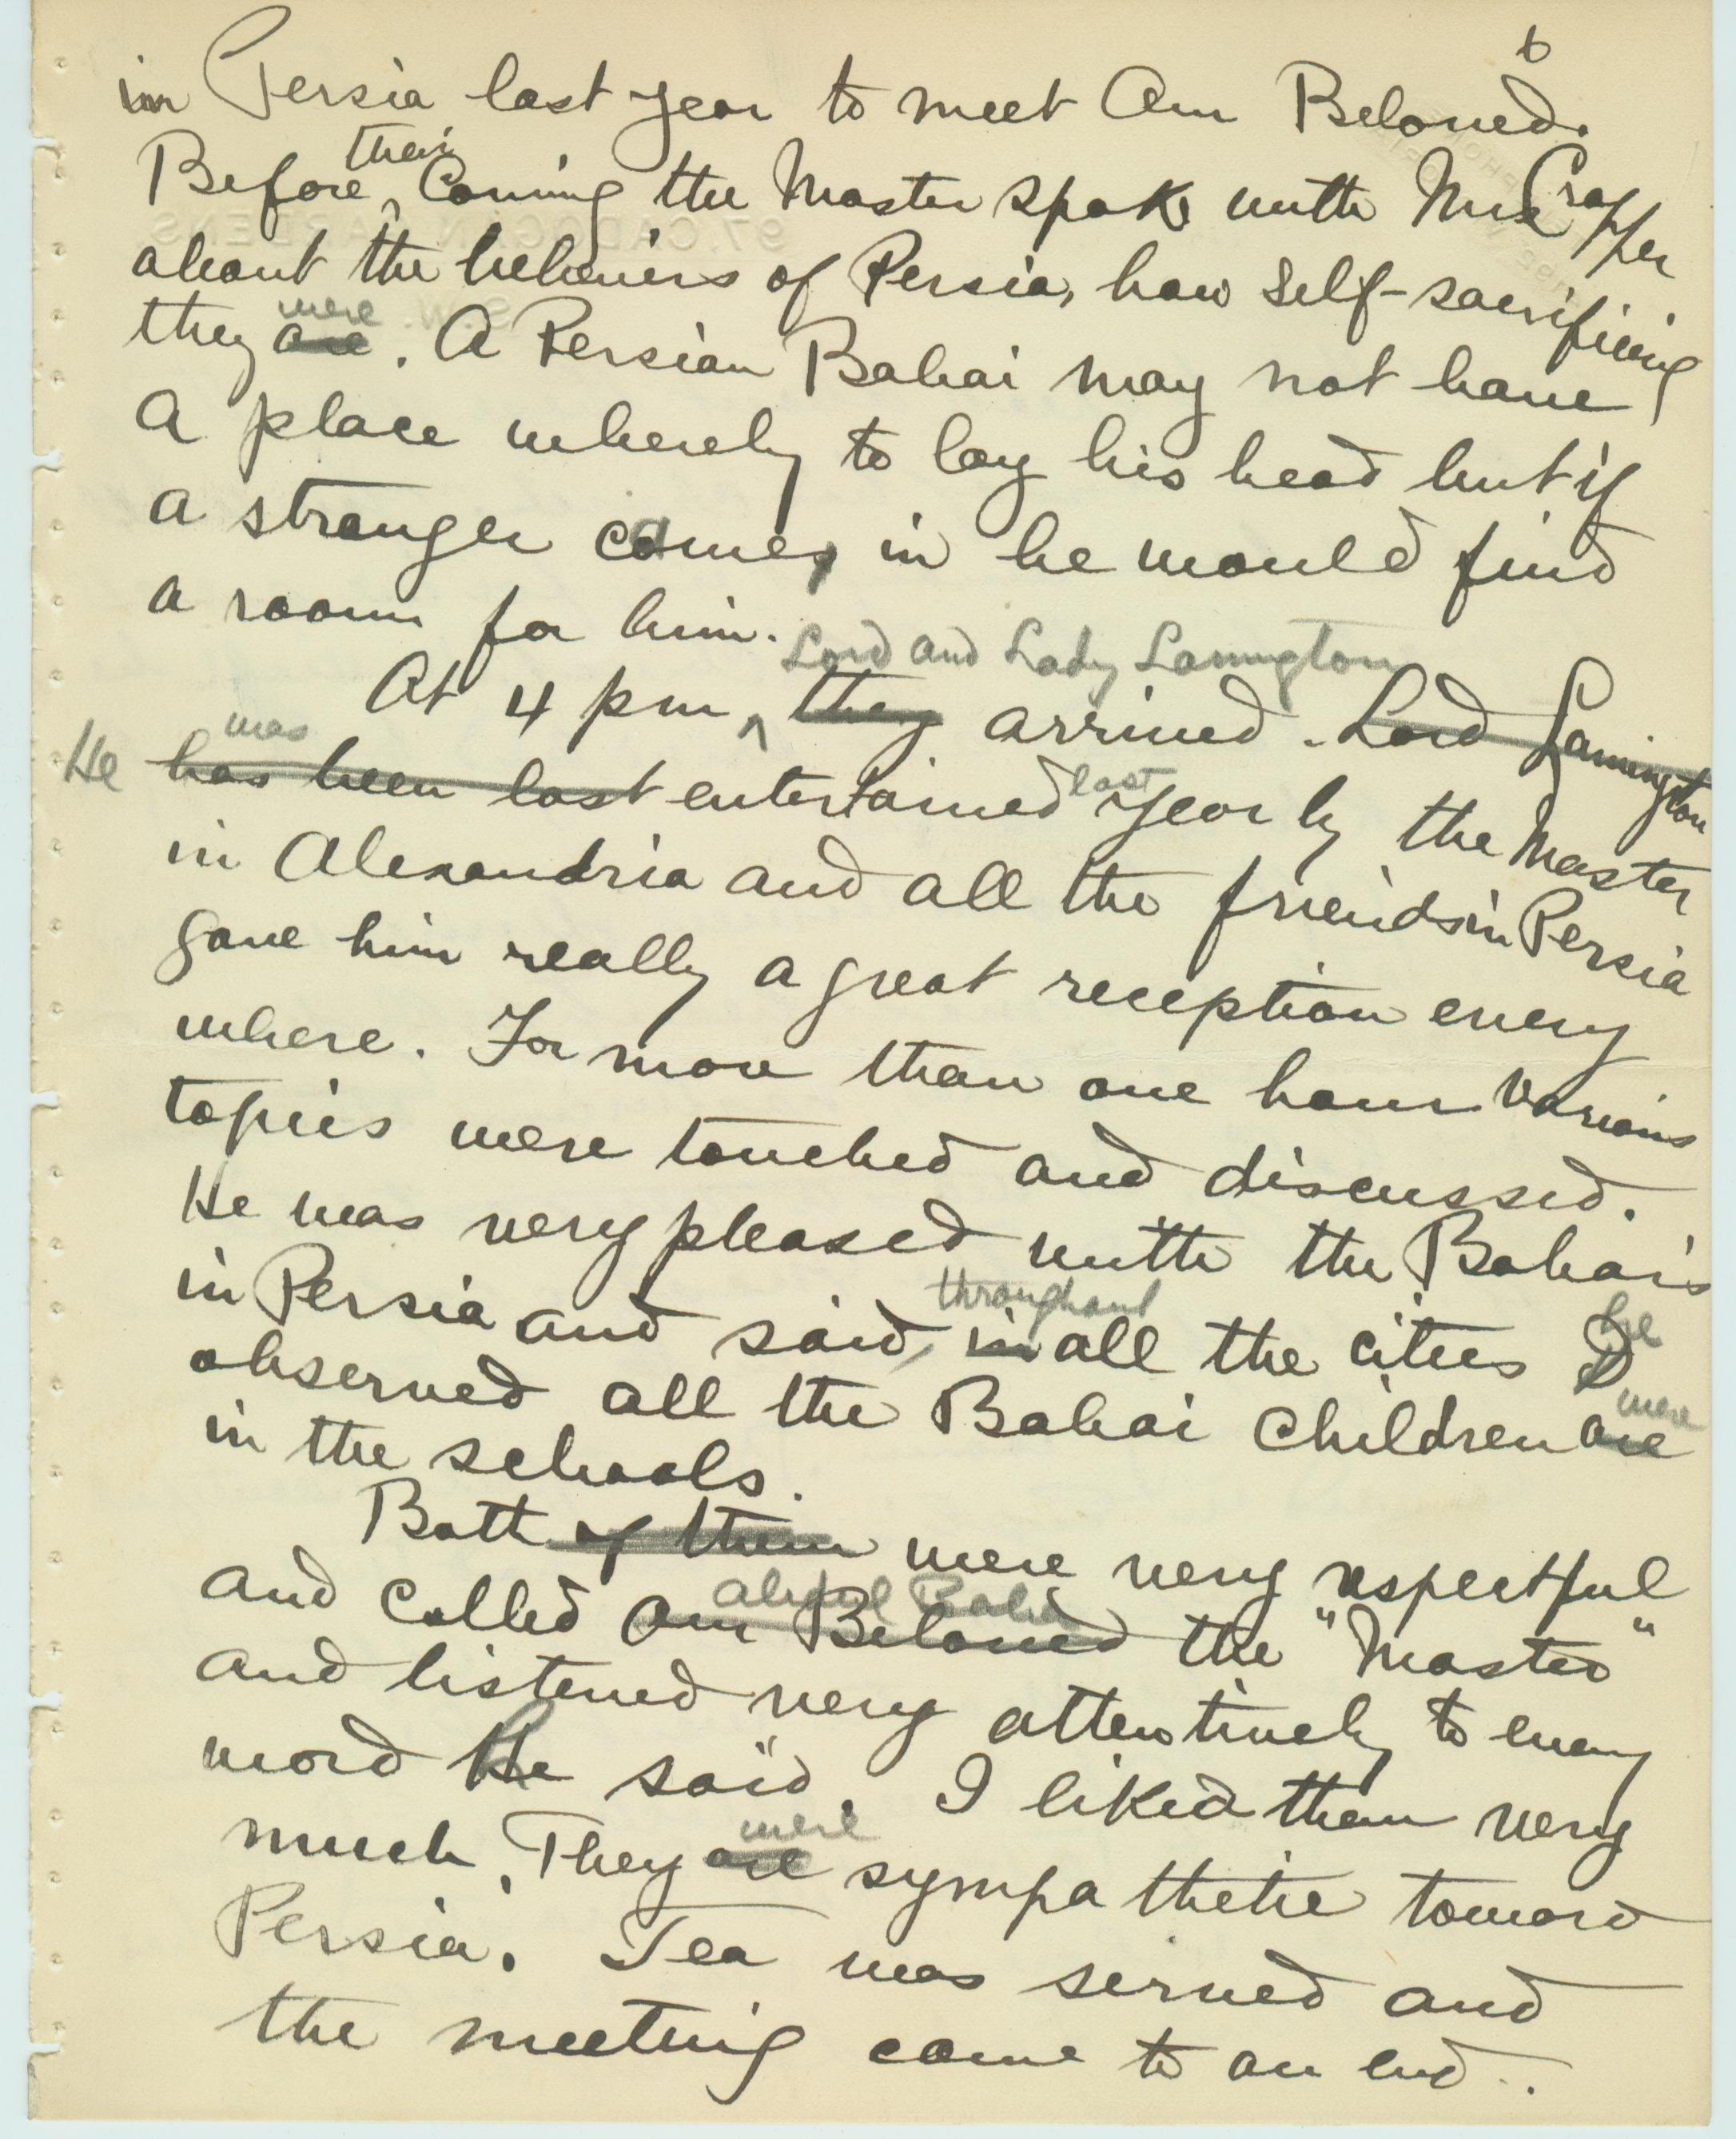 6
in Persia last year to meet Our Beloved.
their
Before, Coming the Master spoke with Mrs Cropper
about the believers of Persia, how self-sacrificing
were
they are. A Persian Bahai may not have
a place whereby to lay his head but if
a stranger comes in he would find
a room for him.
Lord and Lady Lamington
At 4 pm ^ they arrived. Lord Lamington
was
He has been last entertained last year by the Master
in Alexandria and all the friends in Persia
gave him really a great reception every
where. For more than one hour various
topics were touched and discussed.
He was very pleased with the Bahais
throughout he
in Persia and said, in all the cities I
were
observed all the Bahai children are
in the schools.
Both of them were very respectful
Abdul Baha
and called Our Beloved the "Master"
and listened very attentively to every
word He said. I liked them very
were
much. They are sympathetic toward
Persia. Tea was served and
the meeting came to an end.